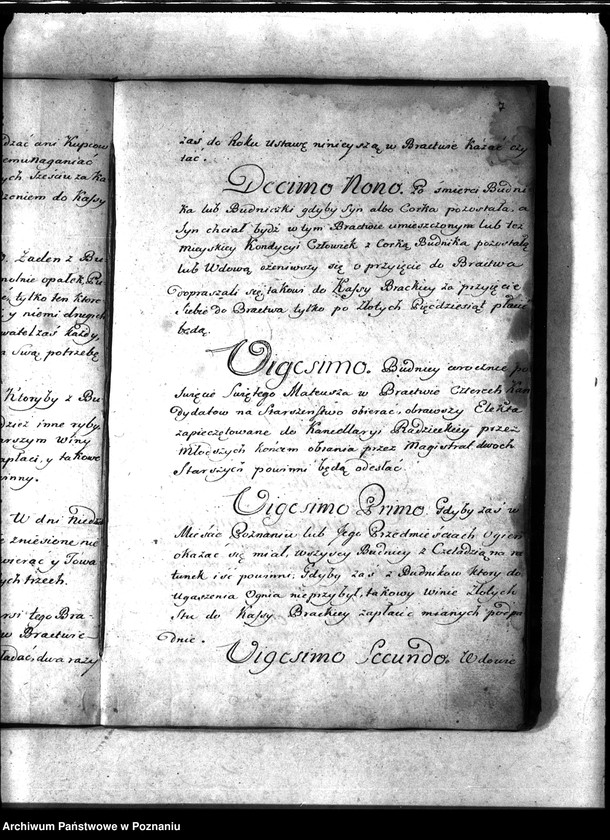 dzać ani Kupcow
emu naganiać
ych Szesciu za Ka
dzeniem do Kassy
Żaden z Bu
tylko ten ktore
y niemi drugich
watel zaś każdy,
Swą potrzebę
Ktoryby z Bu
dzież inne ryby,
arszym winy
apłaci, y takowe
winny.
W dni Niedz
zniesione nie
wierąc y Towa
ych trzech.
arsi tego Bra-
w Bractwie
ładać, dwa razy
7
zaś do Roku Ustawę ninieyszą w Bractwie Kazać czy
tać.
Decimo Nono. Po smierci Budni-
ka lub Budniczki gdyby Syn albo Corka pozostała, a
Syn chciał bydź w tym Bractwie umieszczonym lub też
mieyskiey Kondycyi Człowiek z Corką Budnika pozostałą
lub Wdową ożeniwszy się o przyięcie do Bractwa
dopraszali się, takowi do Kassy Brackiey za przyięcie
Siebie do Bractwa tylko po Złotych Pięćdziesiąt płacić
będą.
Vigesimo. Budnicy corocznie po
Święcie Świętego Mateusza w Bractwie Czterech Kan
dydatow na Starszeństwo obierać, obrawszy Elekta
zapieczętowane do Kancellaryi Radzieckiey przez
Młodszych końcem obrania przez Magistrat dwoch
Starszych powinni będą odesłać.
Vigesimo Primo. Gdyby zaś w
Mieście Poznaniu lub Jego Przedmieściach Ogień
okazać się miał, wszyscy Budnicy z Czeladzią na ra
tunek iść powinni; Gdyby zaś z Budnikow ktory do
Ugaszenia Ognia nieprzybył, takowy Winie Złotych
Stu do Kassy Brackiey zapłacić mianych podpa
dnie.
Vigesimo Secundo. Wdowie
Archiwum Państwowe w Poznaniu